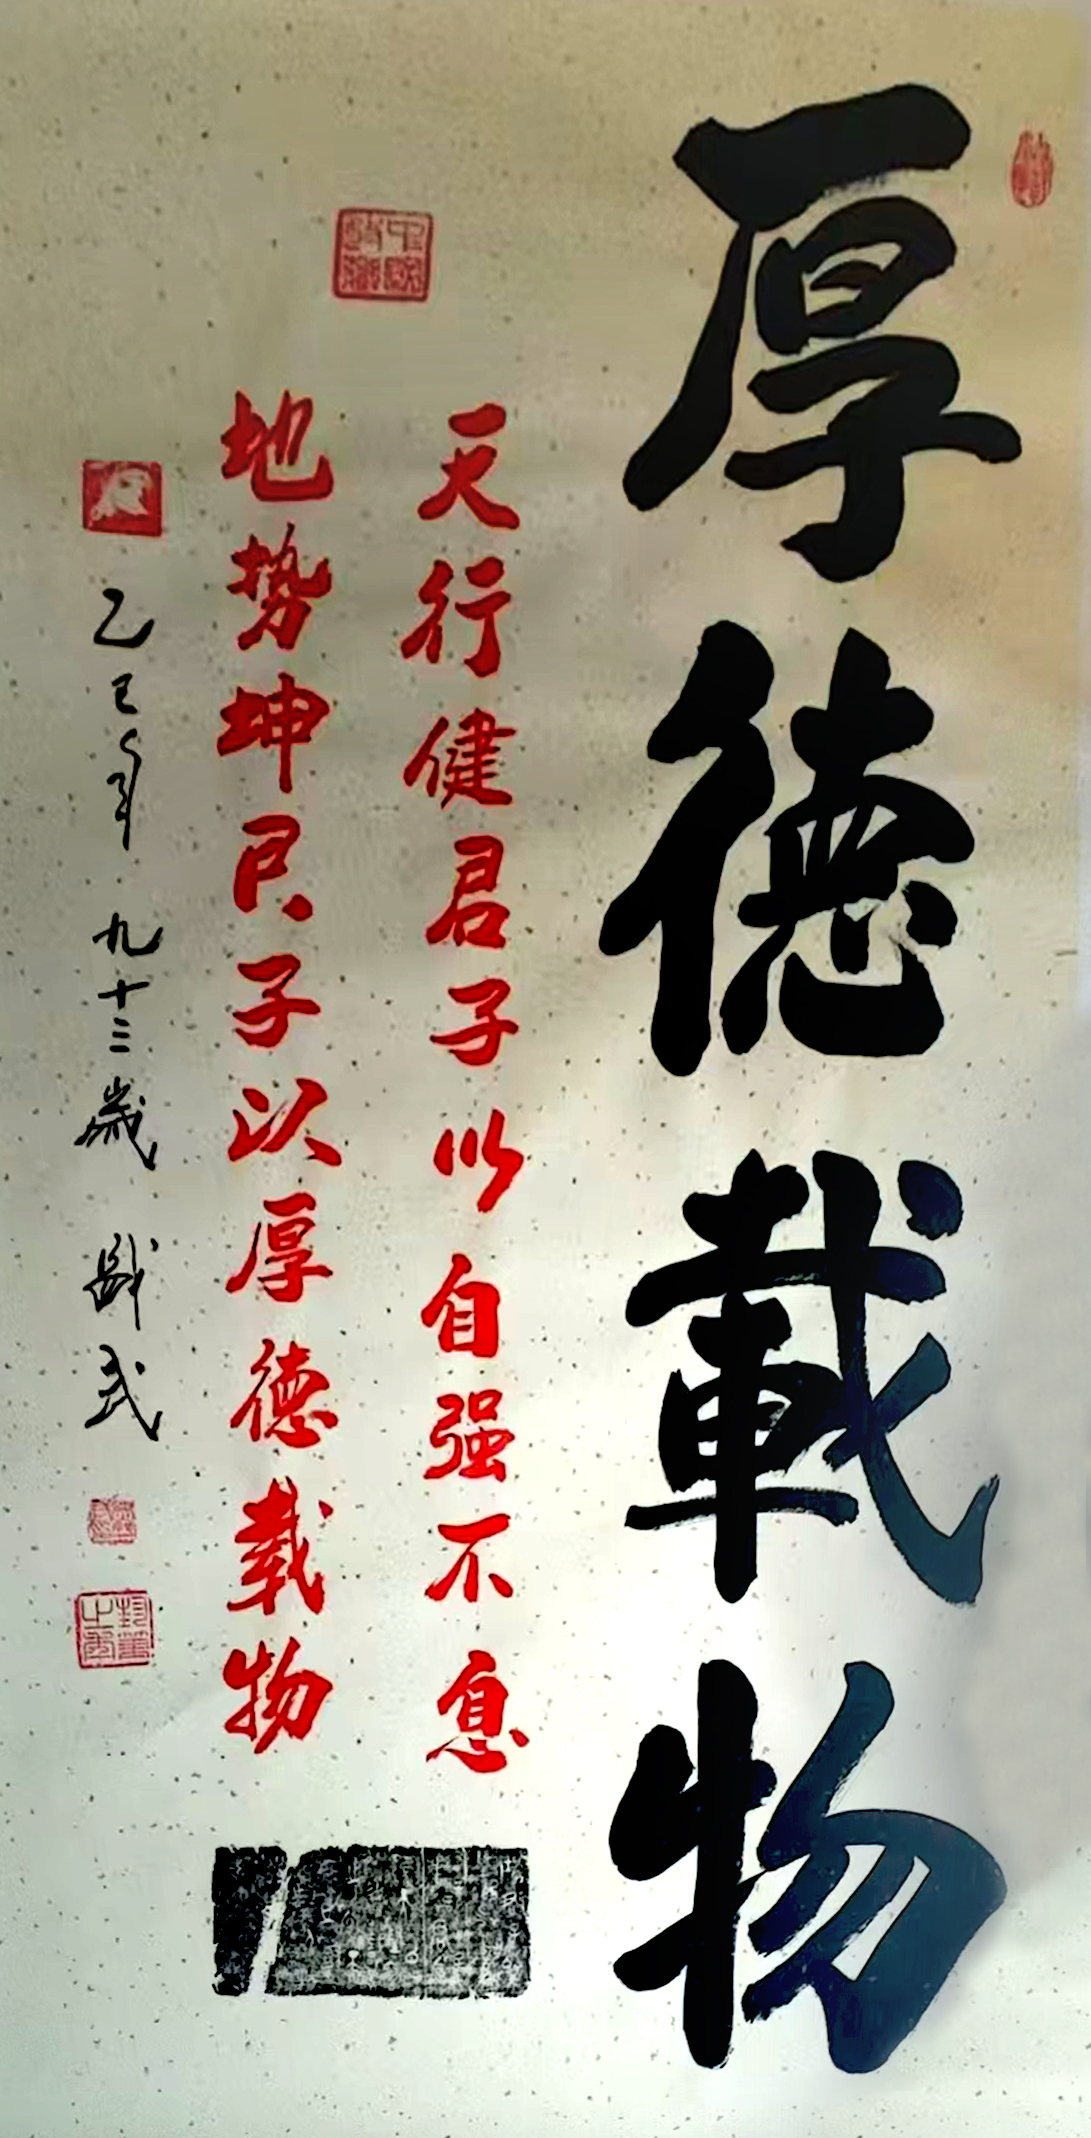 厚德載物
天行健君子以自强不息
地势坤君子以厚德载物
乙巳年 九十三歲